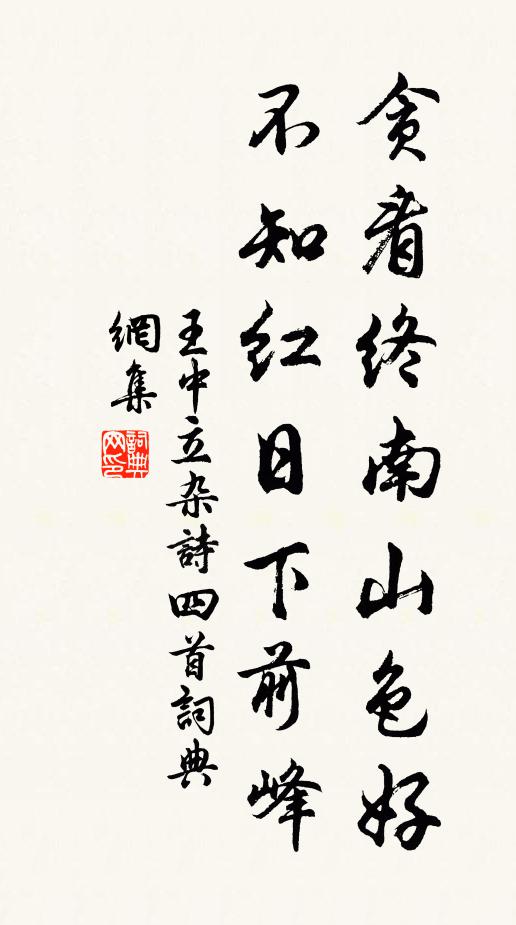 贪看终南山色好
不知红日下前峰
王中立杂詩四首詞典
網集
詞典网印